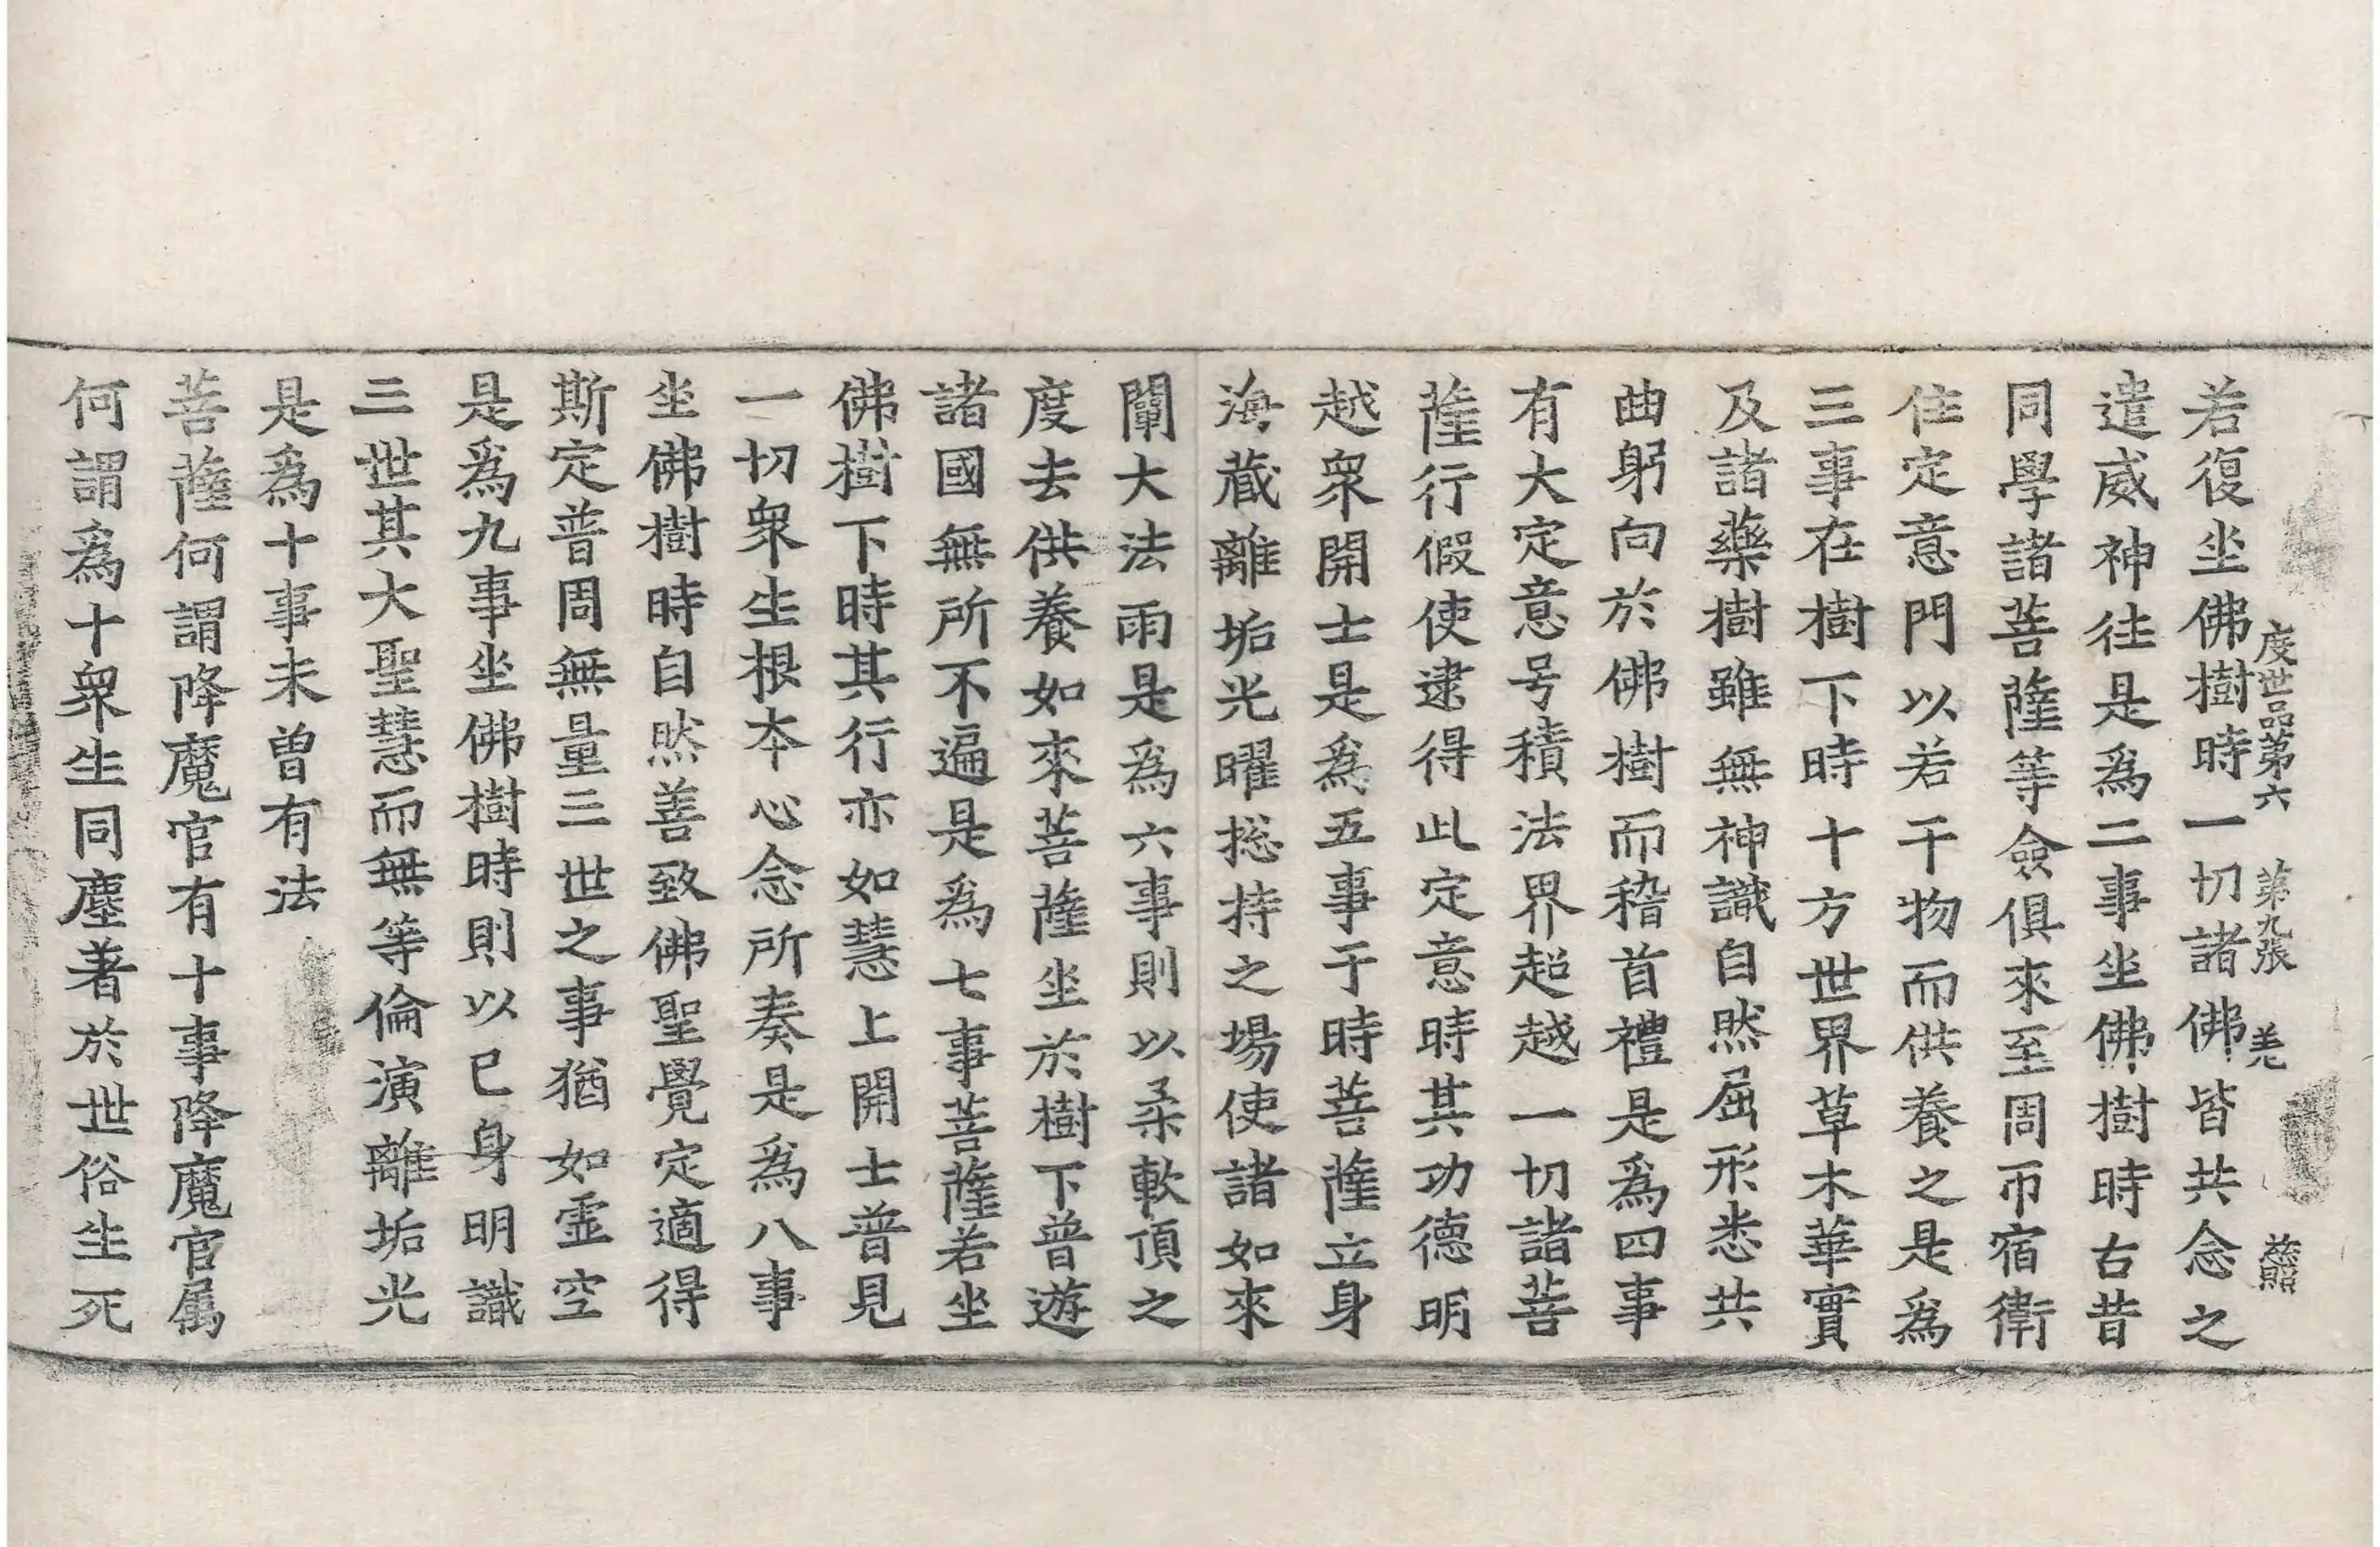 度世品第六 第九張 羌 慈照
若復坐佛樹時一切諸佛皆共念之
遣威神往是為二事坐佛樹時右昔
同學諸菩薩等僉俱來至周帀宿衛
住定意門以若干物而供養之是為
三事在樹下時十方世界草木華實
及諸藥樹雖無神識自然屈形悉共
曲躬向於佛樹而稽首禮是為四事
有大定意号積法界超越一切諸菩
薩行假使逮得此定意時其功德明
越衆開士是為五事于時菩薩立身
海藏離垢光曜捴持之場使諸如來
闡大法雨是為六事則以柔軟頂之
度去供養如來菩薩坐於樹下普遊
諸國無所不遍是為七事菩薩若坐
佛樹下時其行亦如慧上開士普見
一切衆生根本心念所奏是為八事
坐佛樹時自然善致佛聖覺定適得
斯定普周無量三世之事猶如虛空
是為九事坐佛樹時則以已身明識
三世其大聖慧而無等倫演離垢光
是為十事未曽有法
菩薩何謂降魔官有十事降魔官属
何謂為十衆生同塵著於世俗生死